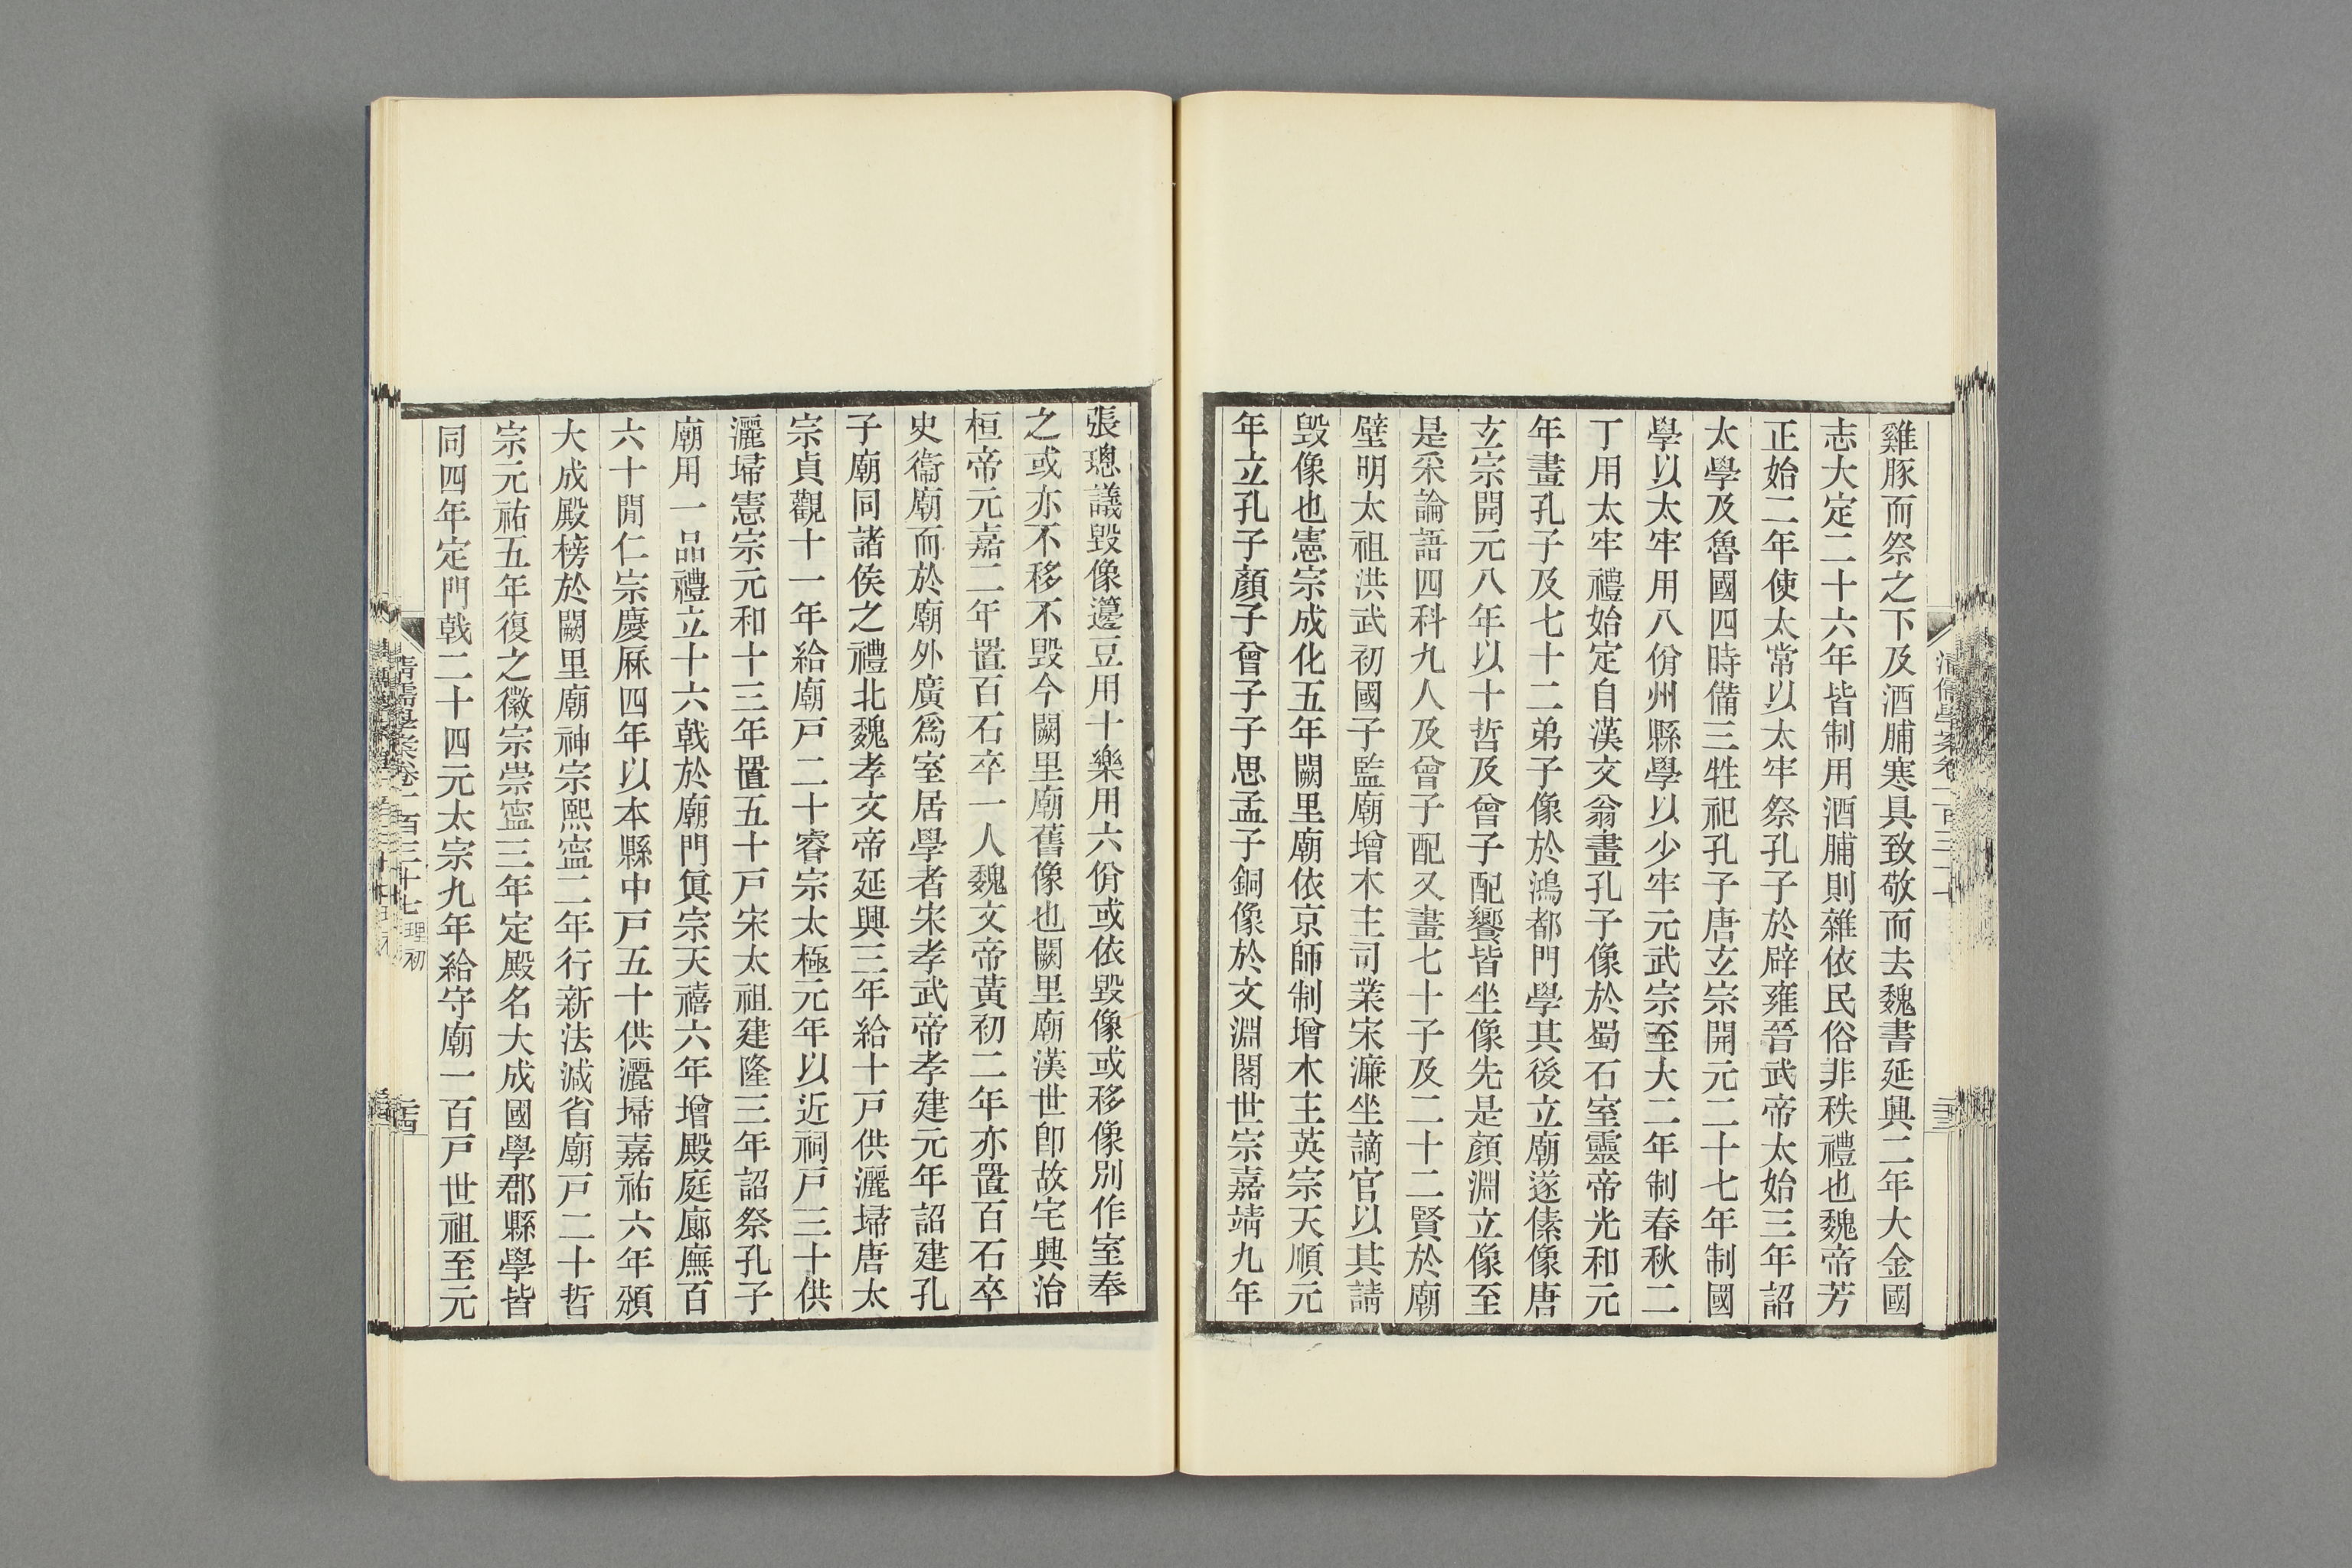 雞豚而祭之下及酒脯寒具致敬而去魏書延興二年大金國
志大定二十六年皆制用酒脯則雜依民俗非秩禮也魏帝芳
正始二年使太常以太牢祭孔子於辟雍晉武帝太始三年詔
太學及魯國四時備三牲祀孔子唐玄宗開元二十七年制國
學以太牢用八佾州縣學以少牢元武宗至大二年制春秋二
丁用太牢禮始定自漢文翁畫孔子像於蜀石室靈帝光和元
年畫孔子及七十二弟子像於鴻都門學其後立廟遂傃像唐
玄宗開元八年以十哲及曾子配饗皆坐像先是顏淵立像至
是采論語四科九人及曾子配又畫七十子及二十二賢於廟
壁明太祖洪武初國子監廟增木主司業宋濂坐謫官以其請
毁像也憲宗成化五年闕里廟依京師制增木主英宗天順元
年立孔子顏子曾子子思孟子銅像於文淵閣世宗嘉靖九年
張璁議毁像籩豆用十樂用六佾或依毁像或移像別作室奉
之或亦不移不毁今闕里廟舊像也闕里廟漢世卽故宅興治
桓帝元嘉二年置百石卒一人魏文帝黃初二年亦置百石卒
史衞廟而於廟外廣爲室居學者宋孝武帝孝建元年詔建孔
子廟同諸侯之禮北魏孝文帝延興三年給十戸供灑埽唐太
宗貞觀十一年給廟戸二十睿宗太極元年以近祠戸三十供
灑埽憲宗元和十三年置五十戸宋太祖建隆三年詔祭孔子
廟用一品禮立十六戟於廟門眞宗天禧六年增殿庭廊廡百
六十閒仁宗慶厤四年以本縣中戸五十供灑埽嘉祐六年頒
大成殿榜於闕里廟神宗熙寍二年行新法減省廟戸二十哲
宗元祐五年復之徽宗崇寍三年定殿名大成國學郡縣學皆
同四年定門戟二十四元太宗九年給守廟一百戸世祖至元
清儒學案卷一百三十七 理初